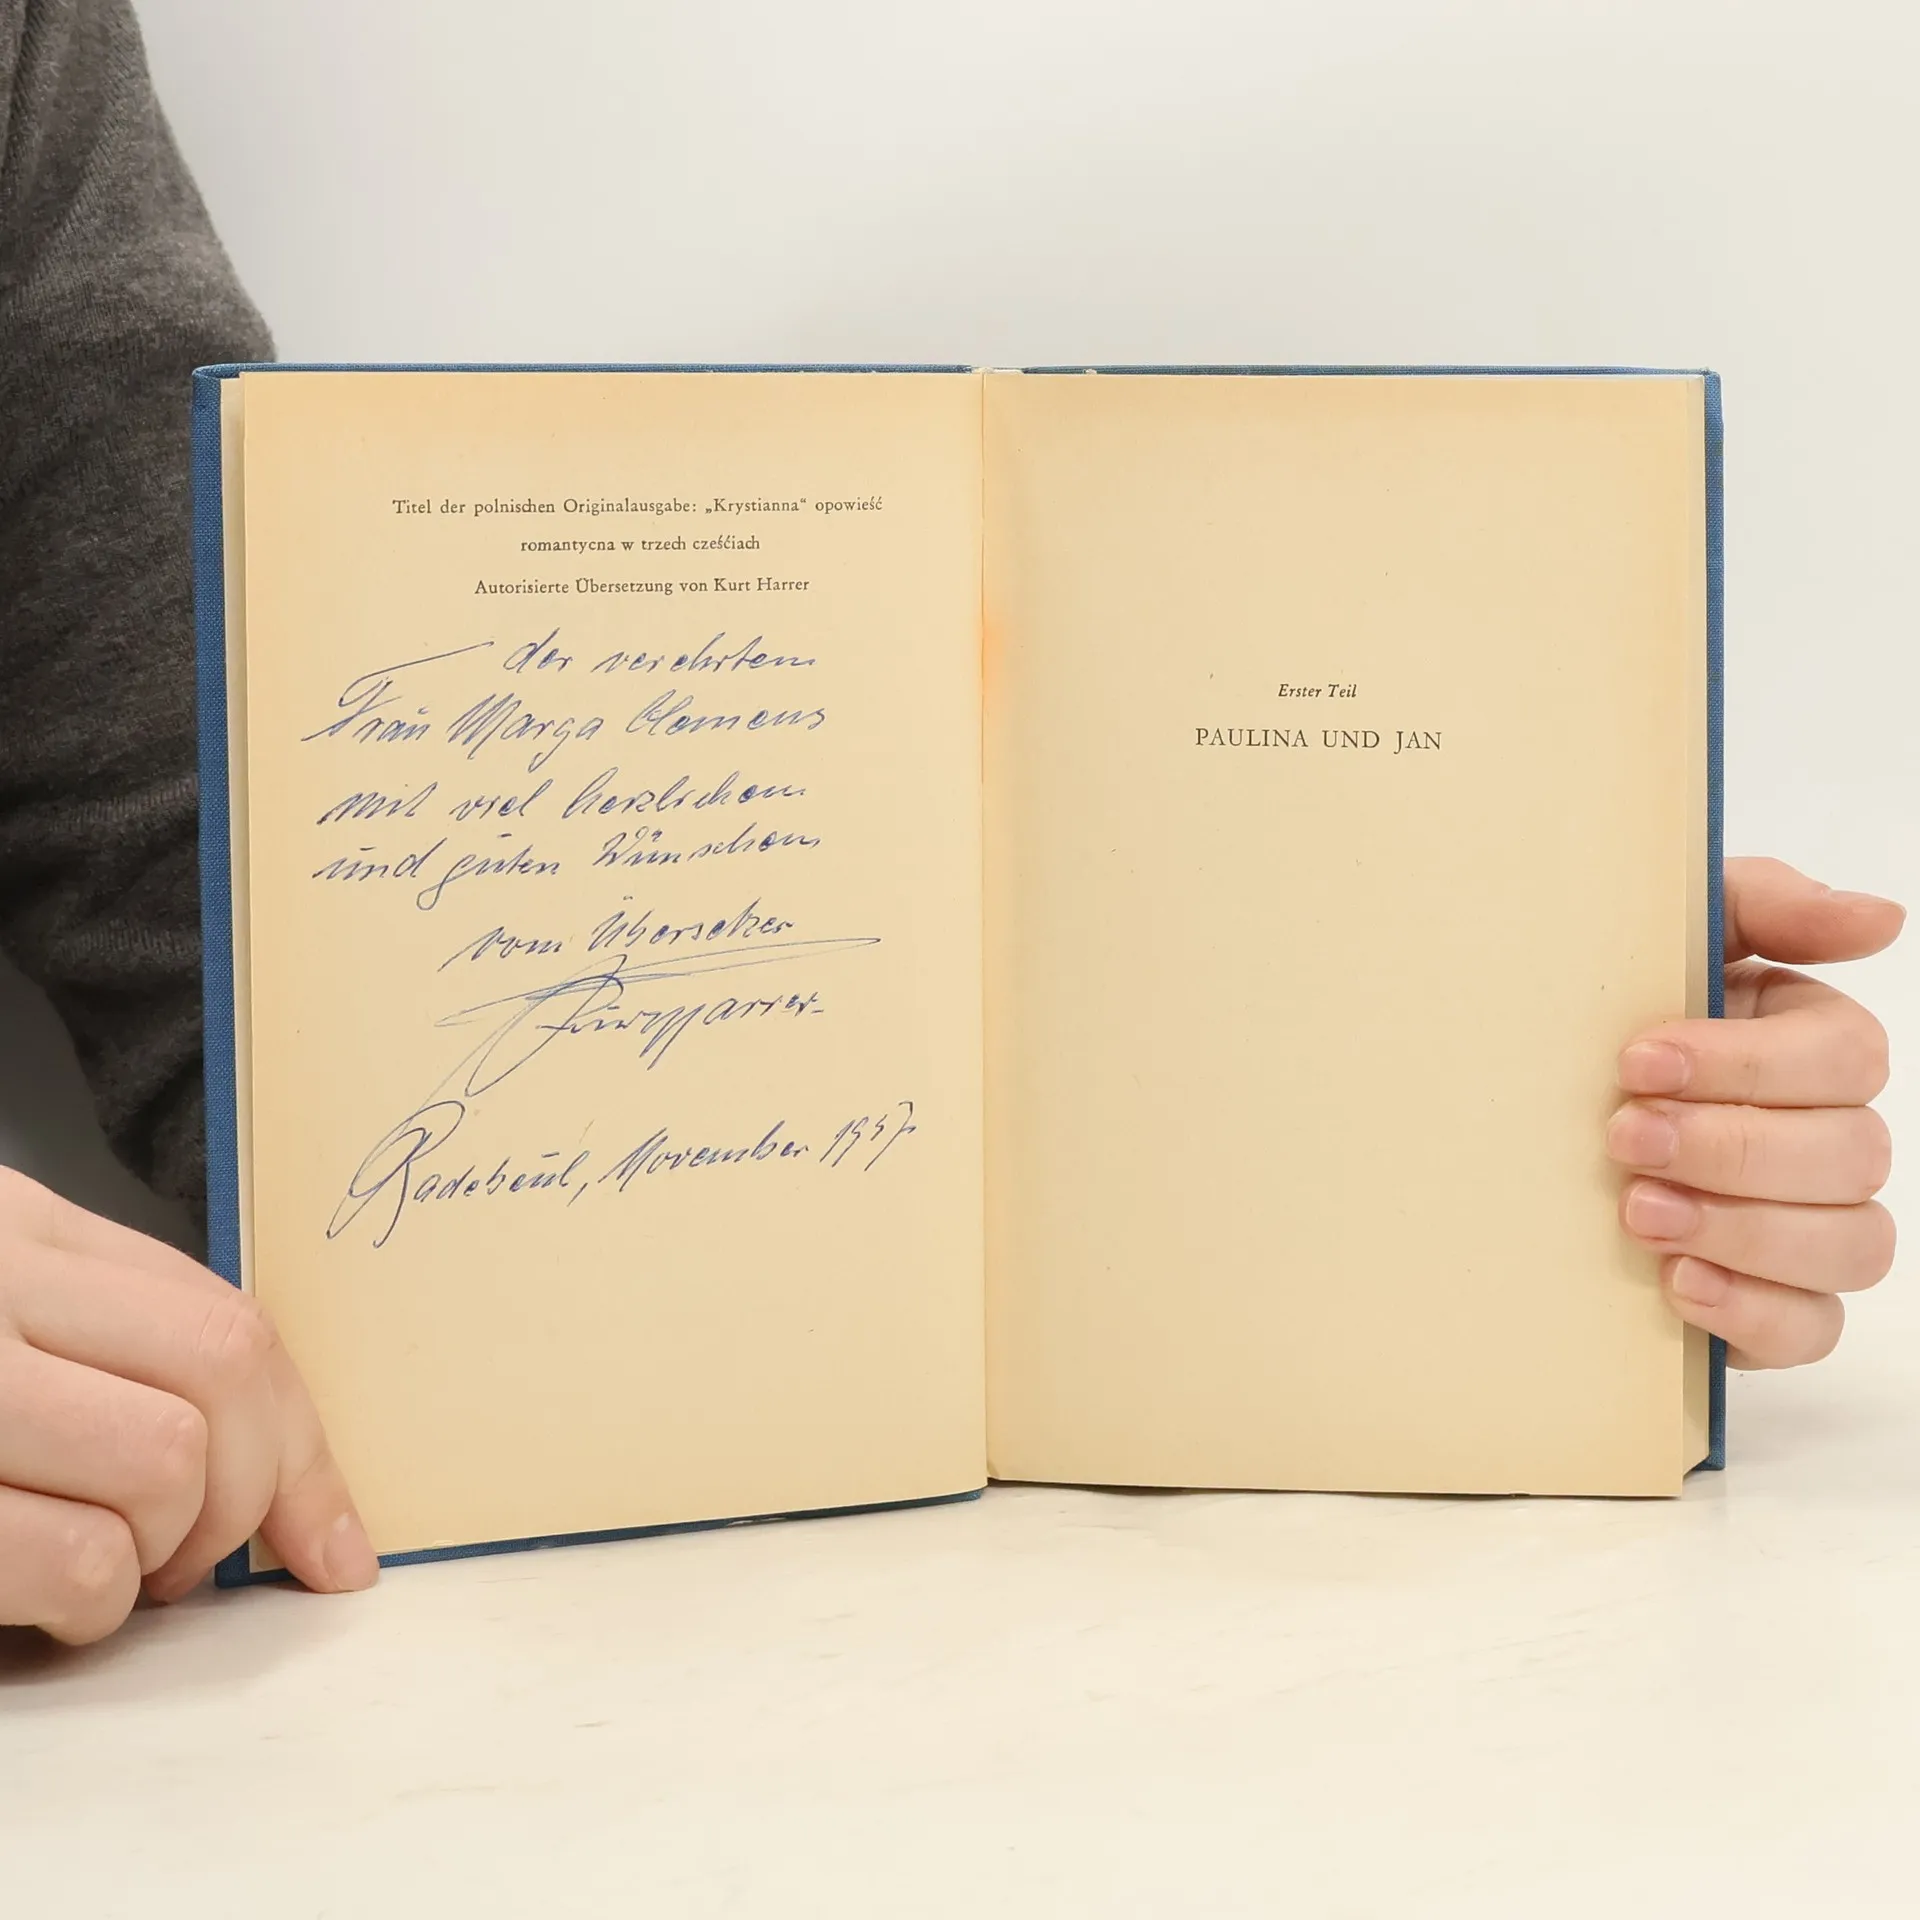 Titel der polnischen Originalausgabe: „Krystianna“ opowieść
romantycna w trzech cześćiach
Autorisierte Übersetzung von Kurt Harrer
der verehrten
Frau Marga Clemens
mit viel herzlichen
und guten Wünschen
vom Übersetzer
Kurt Harrer
Radebeul, November 1957
Erster Teil
PAULINA UND JAN